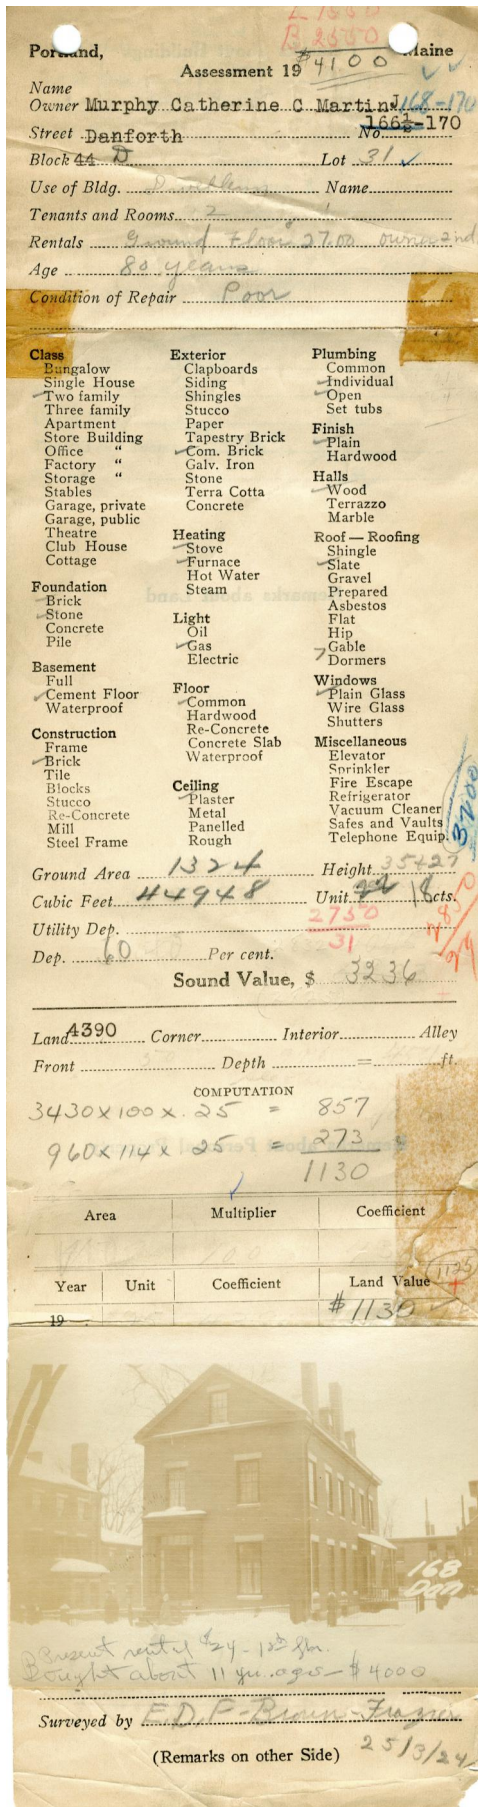 L 1550
B 2550
Portland, Maine
Assessment 19 $4100
Name
Owner Murphy Catherine C Martin J 168-170
Street Danforth No 166½-170
Block 44 D Lot 31
Use of Bldg. Dwelling Name
Tenants and Rooms 2
Rentals Ground Floor 27.00 owner 2nd
Age 80 years
Condition of Repair Poor
Class
Bungalow
Single House
Two family
Three family
Apartment
Store Building
Office "
Factory "
Storage "
Stables
Garage, private
Garage, public
Theatre
Club House
Cottage
Foundation
Brick
Stone
Concrete
Pile
Basement
Full
Cement Floor
Waterproof
Construction
Frame
Brick
Tile
Blocks
Stucco
Re-Concrete
Mill
Steel Frame
Exterior
Clapboards
Siding
Shingles
Stucco
Paper
Tapestry Brick
Com. Brick
Galv. Iron
Stone
Terra Cotta
Concrete
Heating
Stove
Furnace
Hot Water
Steam
Light
Oil
Gas
Electric
Floor
Common
Hardwood
Re-Concrete
Concrete Slab
Waterproof
Ceiling
Plaster
Metal
Panelled
Rough
Plumbing
Common
Individual
Open
Set tubs
Finish
Plain
Hardwood
Halls
Wood
Terrazzo
Marble
Roof — Roofing
Shingle
Slate
Gravel
Prepared
Asbestos
Flat
Hip
Gable
Dormers
Windows
Plain Glass
Wire Glass
Shutters
Miscellaneous
Elevator
Sprinkler
Fire Escape
Refrigerator
Vacuum Cleaner
Safes and Vaults
Telephone Equip.
3200
Ground Area 1324 Height 35+27
Cubic Feet 44948 Unit 22 18 cts.
Utility Dep. 2750
31
2850
29
Dep. 60 Per cent.
Sound Value, $ 3236
Land 4390 Corner Interior Alley
Front Depth = ft.
COMPUTATION
3430 x 100 x .25 = 857
960 x 114 x 25 = 273
1130
Area Multiplier Coefficient
1125
Year Unit Coefficient Land Value
19 $1130
168
Dan
Present rent of $24 - 1st flr.
Bought about 11 yrs. ago - $4000
Surveyed by E.D.F - Brown - Frazier
(Remarks on other Side) 25/3/24